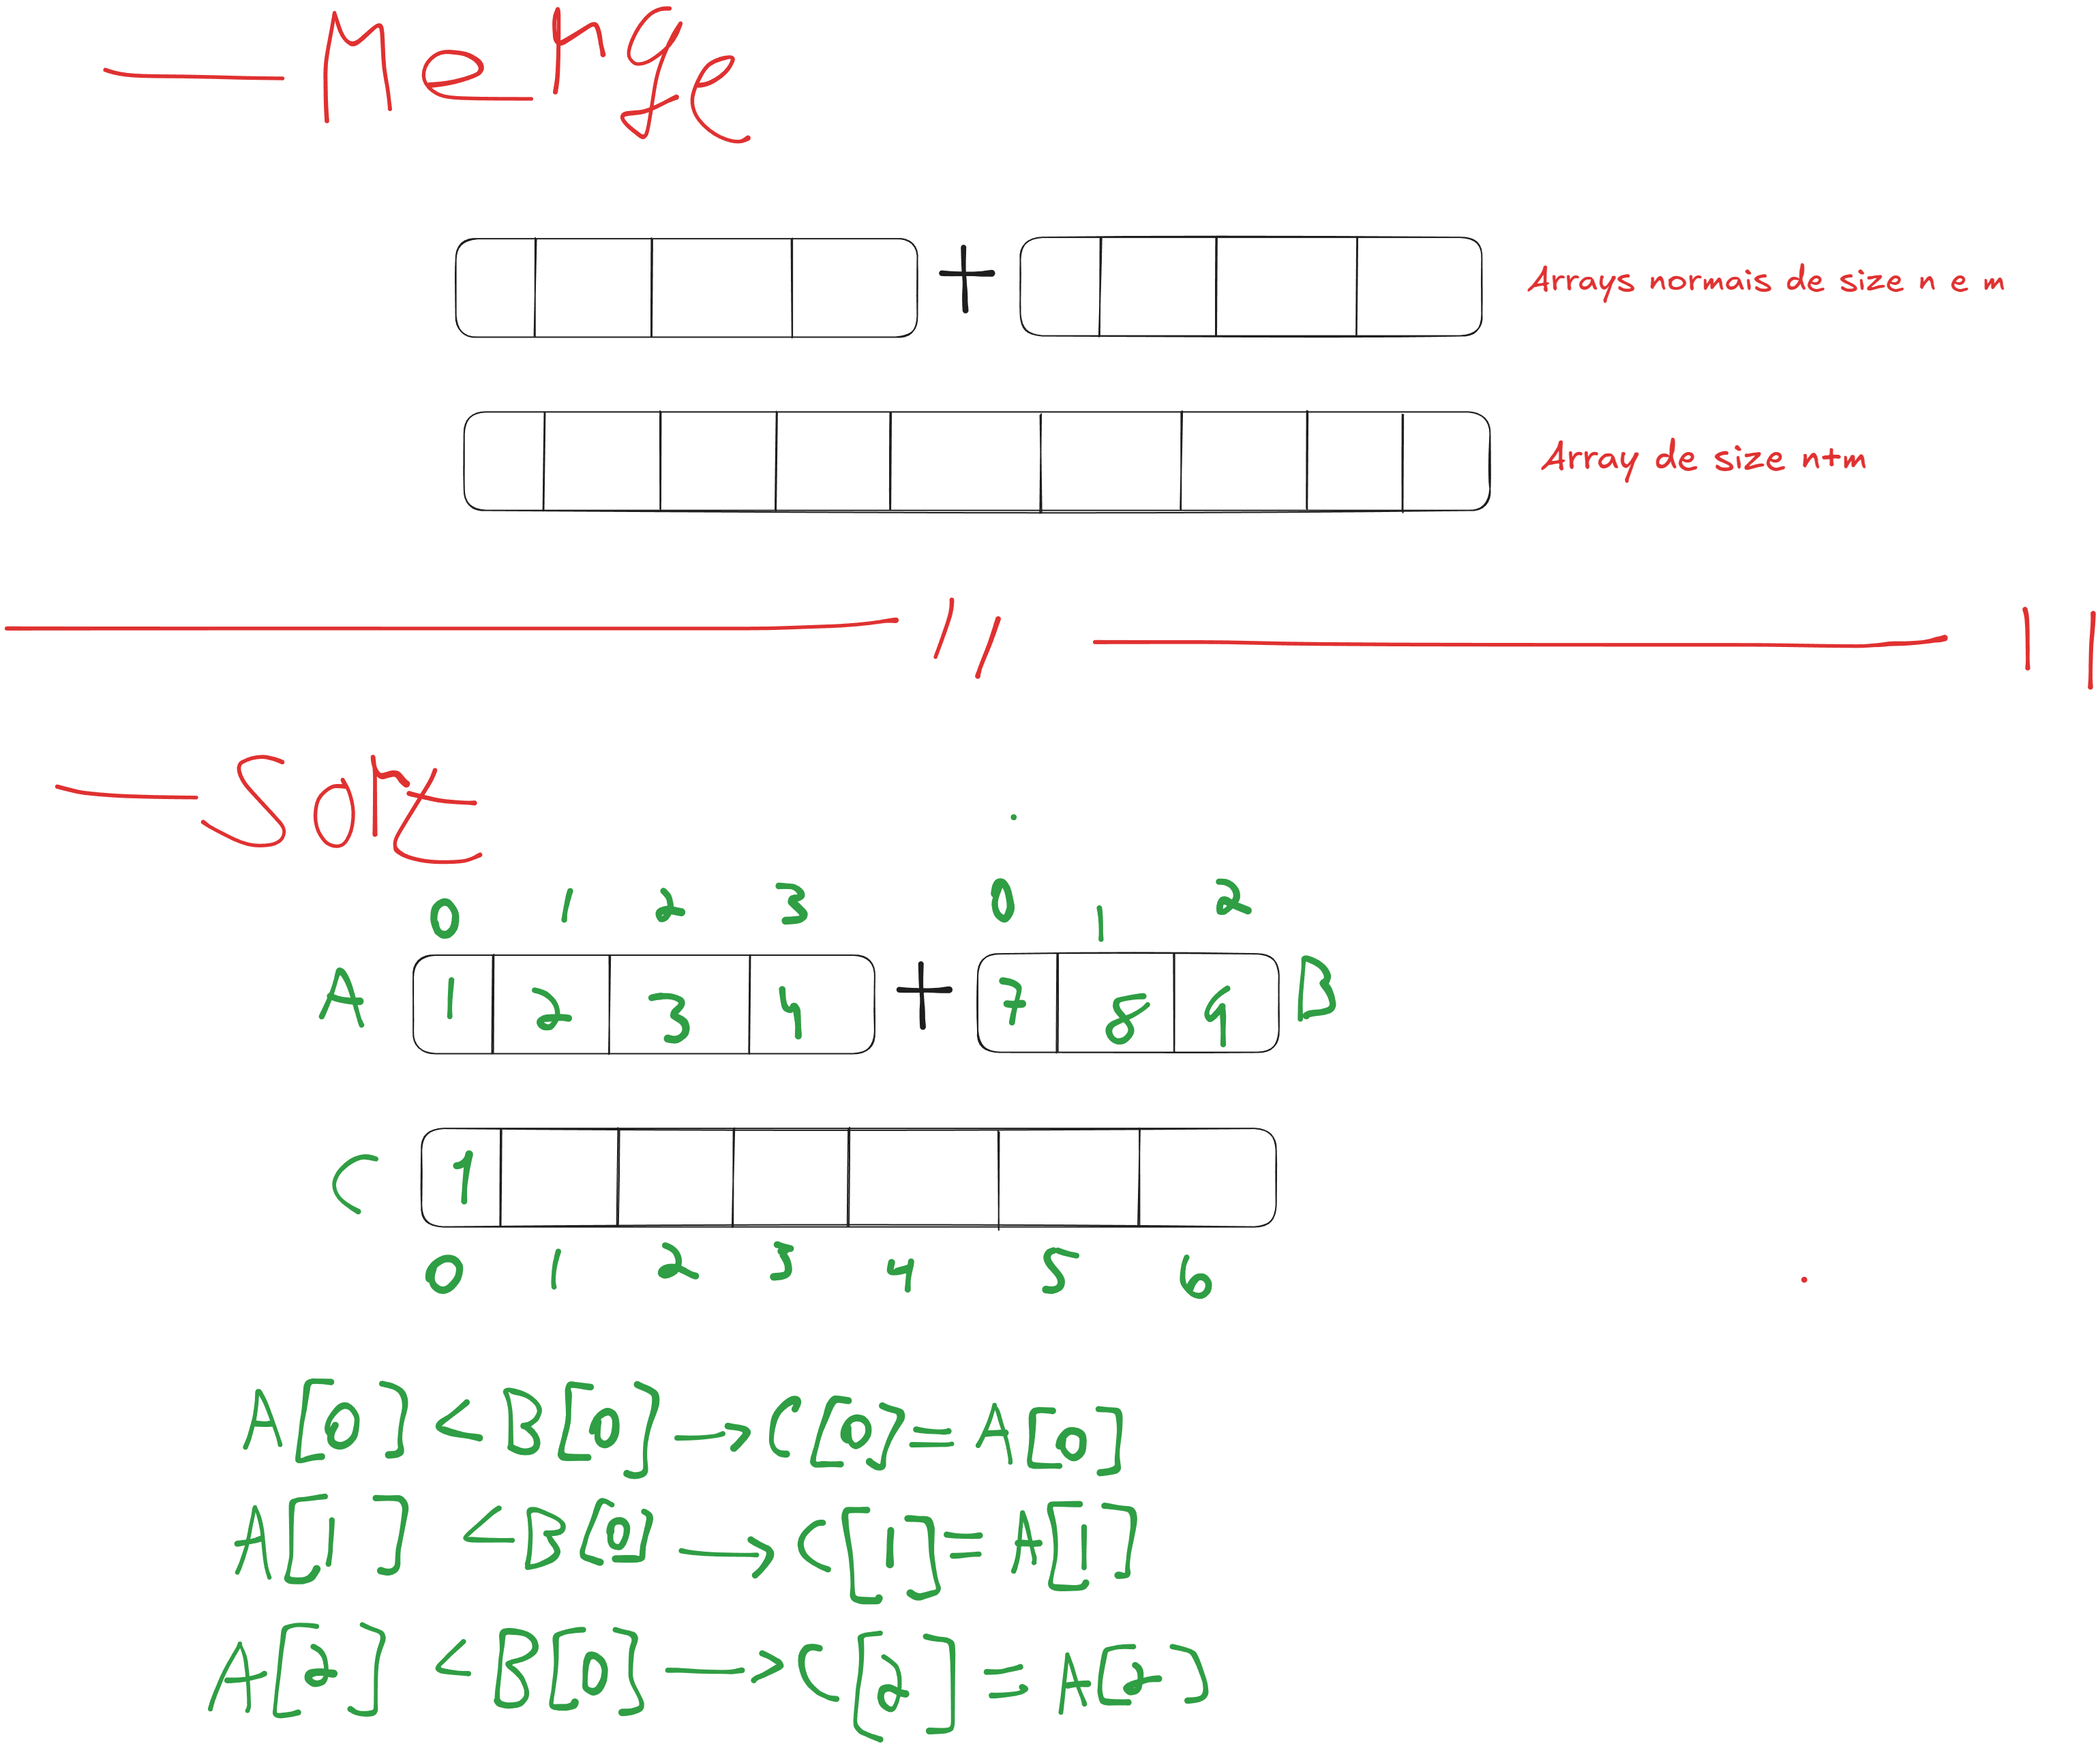 Merge
Arrays normais de size n e m
Array de size n+m
Sort
0 1 2 3 0 1 2
A 1 2 3 4 + 7 8 9 B
C 1
0 1 2 3 4 5 6
A[0] < B[0] → C[0] = A[0]
A[1] < B[0] → C[1] = A[1]
A[2] < B[0] → C[2] = A[2]